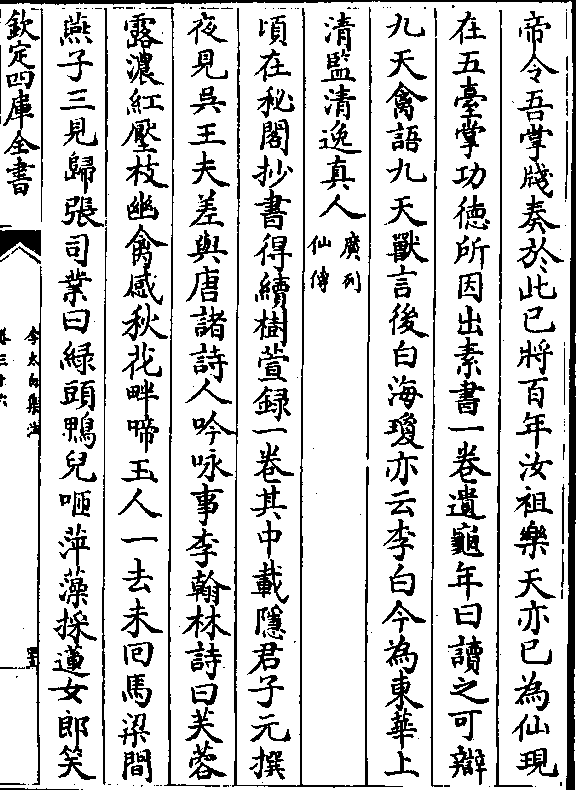 帝令吾掌牋奏於此已將百年汝祖樂天亦已為仙現
在五臺掌功德所因出素書一卷遺龜年曰讀之可辯
九天禽語九天獸言後白海瓊亦云李白今為東華上
清監清逸真人廣列仙傳
頃在秘閣抄書得續樹萱録一卷其中載隱君子元撰
夜見吳王夫差與唐諸詩人吟咏事李翰林詩曰芙蓉
露濃紅壓枝幽禽感秋花畔啼玉人一去未回馬梁間
燕子三見歸張司業曰緑頭鴨兒咂萍藻採蓮女郎笑
欽定四庫全書
李太白集注
卷三十六